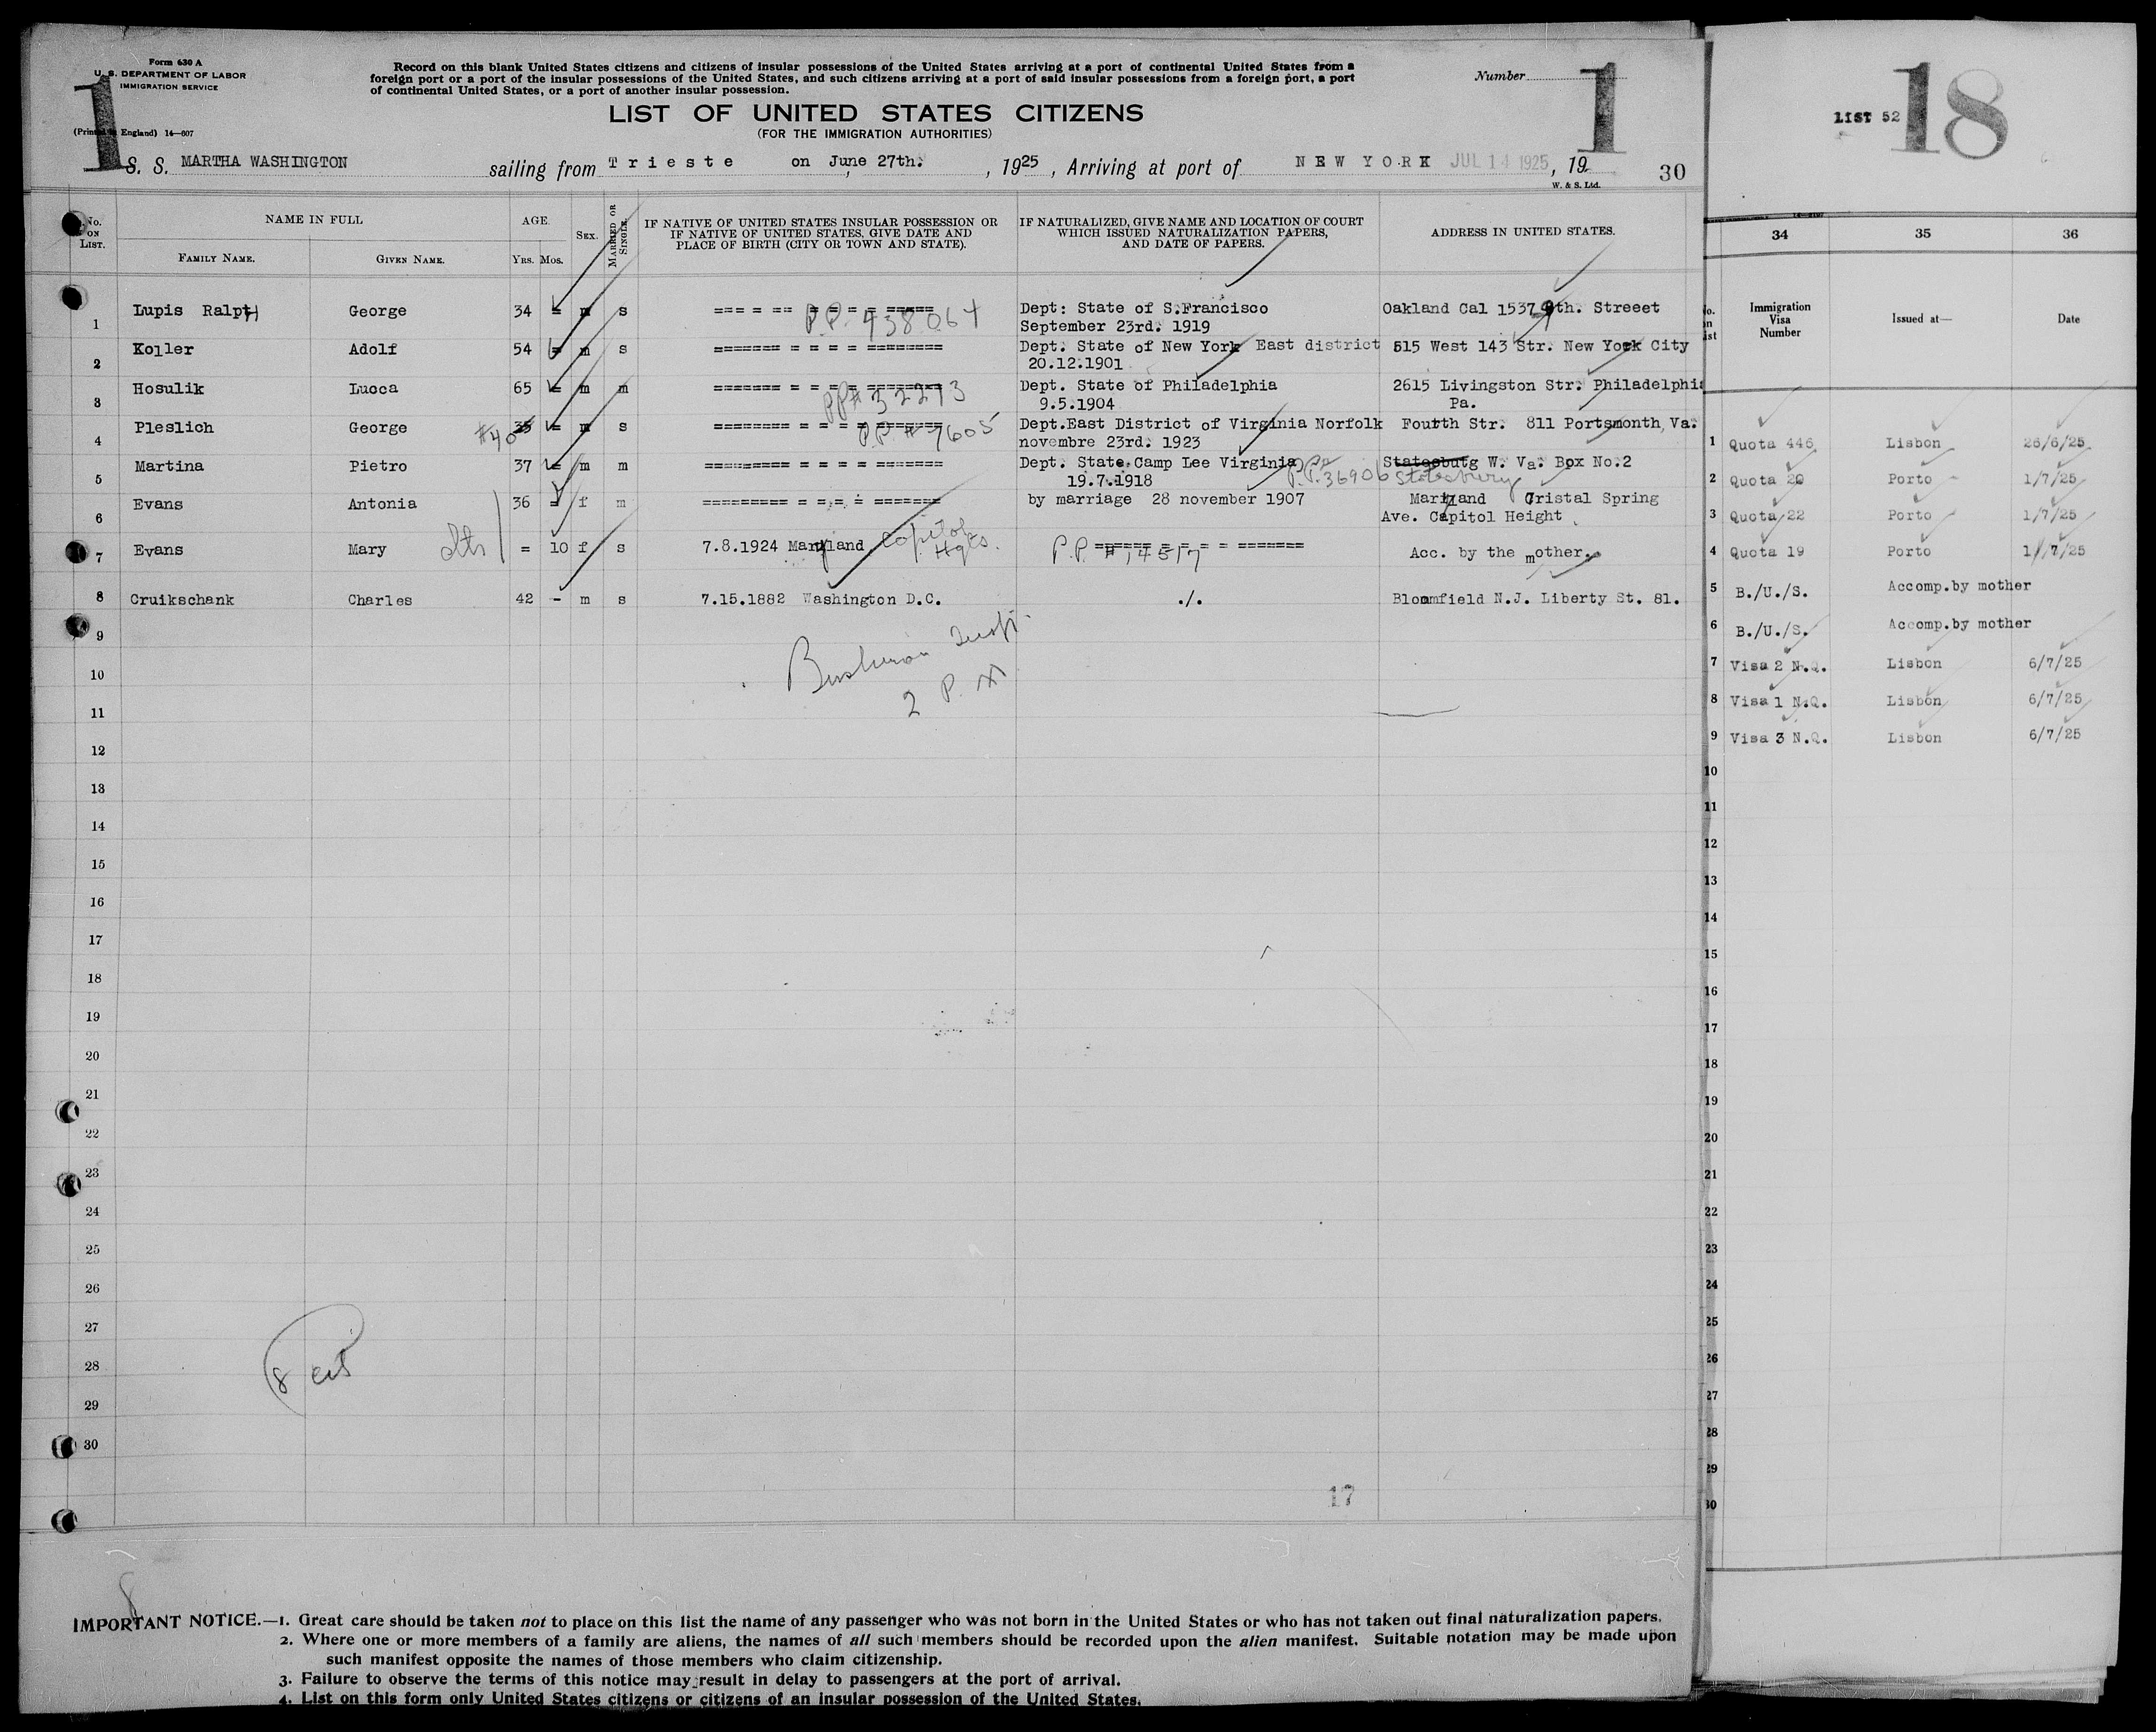 Form 630 A
U. S. DEPARTMENT OF LABOR
IMMIGRATION SERVICE
(Printed in England) 14—607
1
Record on this blank United States citizens and citizens of insular possessions of the United States arriving at a port of continental United States from a
foreign port or a port of the insular possessions of the United States, and such citizens arriving at a port of said insular possessions from a foreign port, a port
of continental United States, or a port of another insular possession.
Number
1
LIST OF UNITED STATES CITIZENS
(FOR THE IMMIGRATION AUTHORITIES)
S. S. MARTHA WASHINGTON sailing from Trieste on June 27th. , 1925 , Arriving at port of NEW YORK JUL 14 1925 , 19
W. & S. Ltd.
30
No. ON LIST.
NAME IN FULL
FAMILY NAME. GIVEN NAME.
AGE.
YRS. MOS.
SEX.
MARRIED OR SINGLE.
IF NATIVE OF UNITED STATES INSULAR POSSESSION OR
IF NATIVE OF UNITED STATES, GIVE DATE AND
PLACE OF BIRTH (CITY OR TOWN AND STATE).
IF NATURALIZED, GIVE NAME AND LOCATION OF COURT
WHICH ISSUED NATURALIZATION PAPERS,
AND DATE OF PAPERS.
ADDRESS IN UNITED STATES.
1 Lupis RalptH George 34 = m s === = == = = = = ===== P.P. 438064 Dept: State of S.Francisco Oakland Cal 1537 9th. Streeet
September 23rd. 1919
2 Koller Adolf 54 = m s ======= = = = = ======== Dept. State of New York East district 515 West 143 Str. New York City
20.12.1901
3 Hosulik Lucca 65 = m m ======= = = = = ======== PP# 32273 Dept. State of Philadelphia 2615 Livingston Str. Philadelphia
9.5.1904 Pa.
4 Pleslich George #40 35 = m s ======== = = = = ======= P.P. # 7605 Dept.East District of Virginia Norfolk Fourth Str. 811 Portsmonth, Va.
novembre 23rd. 1923
5 Martina Pietro 37 = m m ========= = = = = ======= Dept. State.Camp Lee Virginia Statesbutg W. Va. Box No.2
19.7.1918 P.P.# 36906 Statesbury
6 Evans Antonia 36 = f m ========= = = = = ======= by marriage 28 november 1907 Mariland Cristal Spring
Ave. Capitol Height
7 Evans Mary = 10 f s 7.8.1924 Maryland Capitol Hgts. P.P. # 14517 ======= = = = = ======= Acc. by the mother.
8 Cruikschank Charles 42 - m s 7.15.1882 Washington D.C. ./. Bloomfield N.J. Liberty St. 81.
9
10
2 P.
11
12
13
14
15
16
17
18
19
20
21
22
23
24
25
26
27
28
8 cit
29
30
17
8
IMPORTANT NOTICE.—1. Great care should be taken not to place on this list the name of any passenger who was not born in the United States or who has not taken out final naturalization papers.
2. Where one or more members of a family are aliens, the names of all such members should be recorded upon the alien manifest. Suitable notation may be made upon
such manifest opposite the names of those members who claim citizenship.
3. Failure to observe the terms of this notice may result in delay to passengers at the port of arrival.
4. List on this form only United States citizens or citizens of an insular possession of the United States.
LIST 52
18
34 35 36
No. on List
Immigration Visa Number
Issued at—
Date
1 Quota 446 Lisbon 26/6/25
2 Quota 20 Porto 1/7/25
3 Quota 22 Porto 1/7/25
4 Quota 19 Porto 1/7/25
5 B./U./S. Accomp.by mother
6 B./U./S. Accomp.by mother
7 Visa 2 N.Q. Lisbon 6/7/25
8 Visa 1 N.Q. Lisbon 6/7/25
9 Visa 3 N.Q. Lisbon 6/7/25
10
11
12
13
14
15
16
17
18
19
20
21
22
23
24
25
26
27
28
29
30